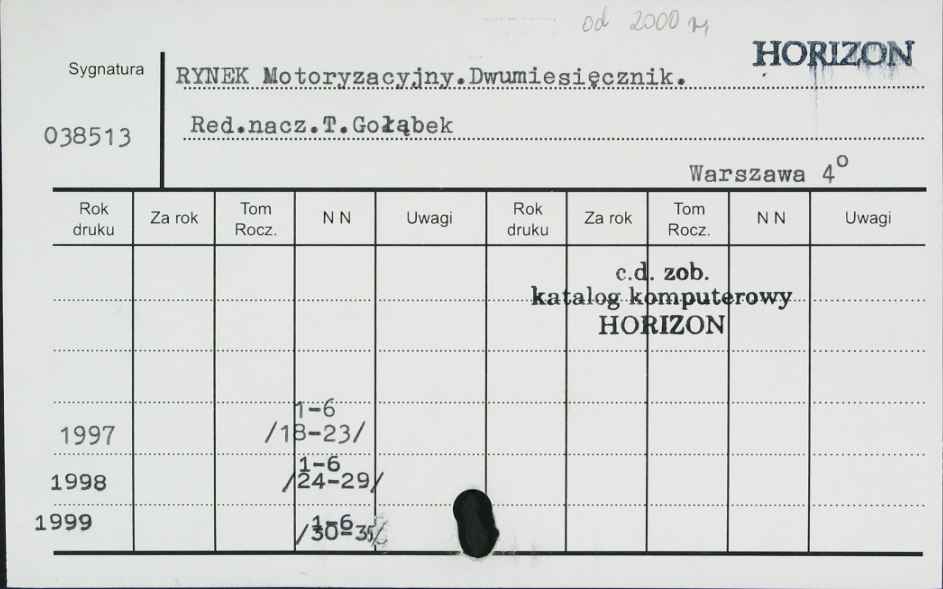 od 2000 r.
HORIZON
Sygnatura
RYNEK Motoryzacyjny.Dwumiesięcznik.
038513
Red.nacz.T.Gołąbek
Warszawa 4º
Rok druku Za rok Tom Rocz. N N Uwagi Rok druku Za rok Tom Rocz. N N Uwagi
c.d. zob.
katalog komputerowy
HORIZON
1-6
1997 /18-23/
1-6
1998 /24-29/
1999 1-6
/30-35/